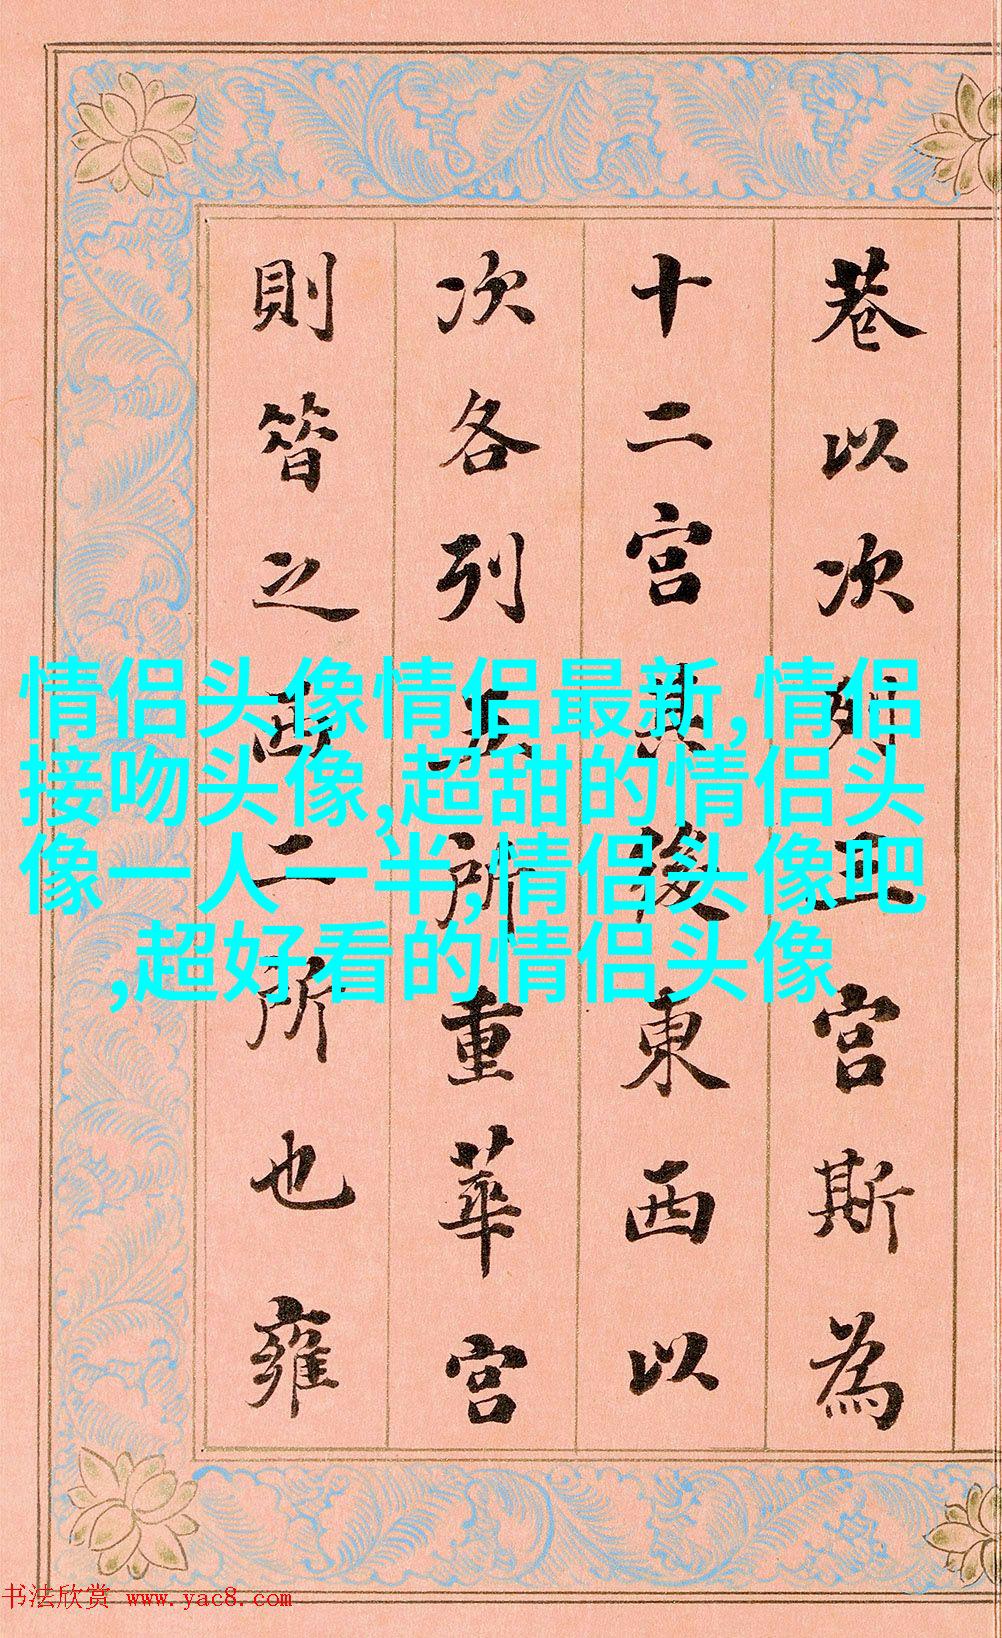 巷以次列五宫斯為
十二宫其後東西以
次各列五所重華宫
則㫺之西二所也雍
情侣头像情侣最新,情侣
接吻头像,超甜的情侣头
像一人一半,情侣头像吧
,超好看的情侣头像
书法欣赏 www.yac8.com